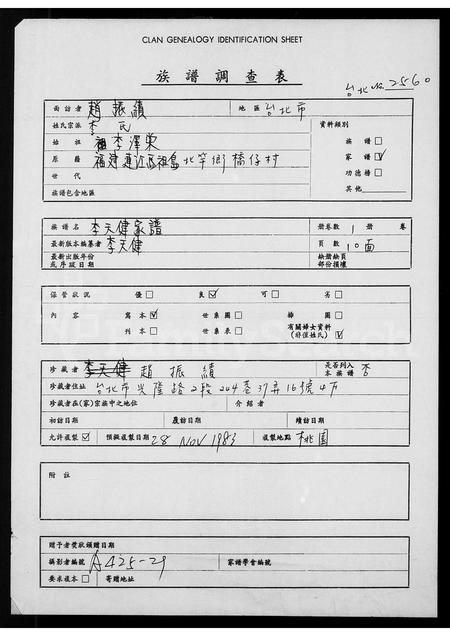 CLAN GENEALOGY IDENTIFICATION SHEET
族譜調查表
台北 No. 2560
面訪者 趙振績 地區 台北市
姓氏宗派 李氏 資料類別
始祖 祖李澤榮 族譜□
原籍 福建連江馬祖島北竿鄉橋仔村 家譜☑
世代 功德榜□
族譜包含地區 其他
族譜名 李天健家譜 冊卷數 1 冊 卷
最新版本編纂者 李天健 頁數 10面
最新出版年份 缺冊缺頁
或序跋日期 部份損壞
保管狀況 優□ 良☑ 可□ 劣□
內容 寫本☑ 世系圖□ 插圖□
刊本□ 世系表□ 有關婦女資料 (非僅姓氏)☑
珍藏者 李天健 趙振績 是否列入本族譜 否
珍藏者住址 台北市興隆路2段244巷37弄16號4F
珍藏者在(家)宗族中之地位 介紹者
初訪日期 覆訪日期 續訪日期
允許複製☑ 預擬複製日期 28 NOV 1983 複製地點 桃園
附註
贈予者獎狀頒贈日期
攝影者編號 A425-29 家譜學會編號
要求複本□ 寄贈地址